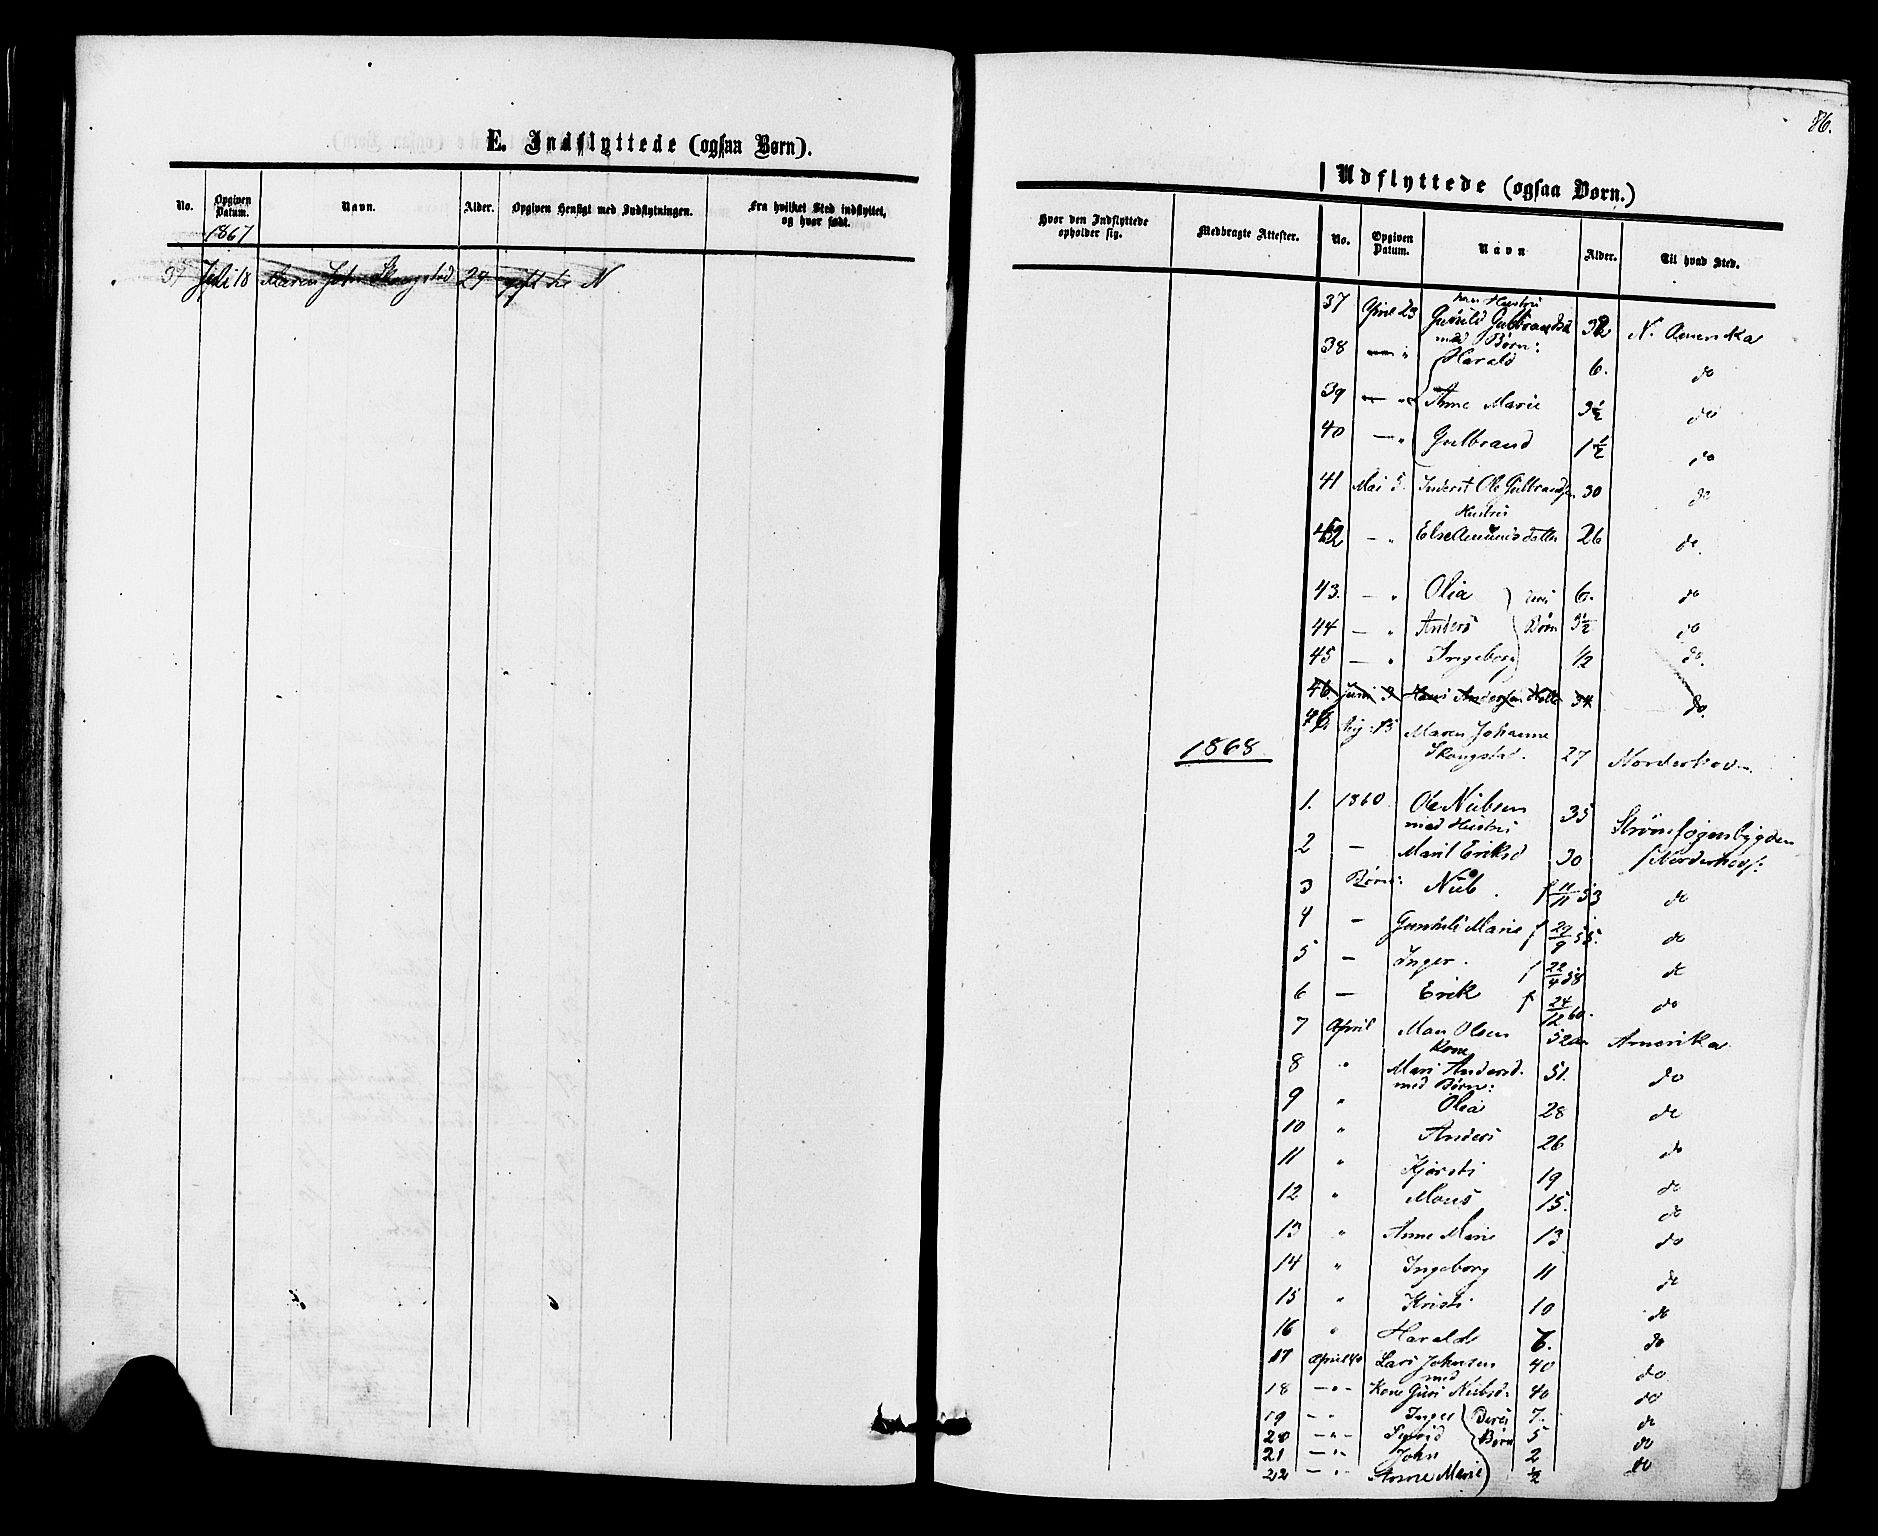 86.
E. Indflyttede (ogsaa Børn).
No. Opgiven Datum. Navn. Alder. Opgiven Hensigt med Indflytningen. Fra hvilket Sted indflyttet, og hvor født.
1867
Juli 18 Maren Joh Skougstad 27 gift til N
Udflyttede (ogsaa Børn.)
Hvor den Indflyttede opholder sig. Medbragte Attester. No. Opgiven Datum. Navn Alder. Til hvad Sted.
37 April 23 hans Hustru Gunild Gulbrandsd 32 N. Amerika
med Børn:
38 — " Harald 6. do
39 — " Anne Marie 3½ do
40 — " Gulbrand 1½ do
41 Mai 5. Inderst Ole Gulbrandsen 30 do
Hustru
42 — " Else Amundsdatter 26 do.
43. — " Olia 6. do
44 — " Anders Børn 3½ do
45 — " Ingeborg ½ do.
46 Juni 3 Hans Andersen 34 do.
46 13 Maren Johanne
Skougstad. 27 Norderhov
1868
1. 1860 Ole Nielsen 35 Strømsogenbygden
med Hustru
2 — Marit Eriksd 30 Norderhov:
3 Børn: Niels f 11/11 53 do
4 — Gunhild Marie f 29/9 55. do
5 — Inger. f 22/4 58 do
6 — Erik f 24/12 60. do
7 April Olsen 52 Amerika
Kone
8 " Mari Andersd. 51. do
med Børn:
9 " Olia 28 do
10 " Anders 26 do
11 " Kjersti 19 do
12 " Mons 15. do
13 " Anne Marie 13 do
14 " Ingeborg 11 do
15 " Kristi 10 do
16 " Harald 6. do
17 April 40 Lars Johnsen 40 do
med
18 — " — Kone Guri Nielsd. 40 do
19 — " Inger Deres 7. do
20 — " — Sigrid Børn 5 do
21 — " — John 2 do
22 — " Anne Marie ½ do